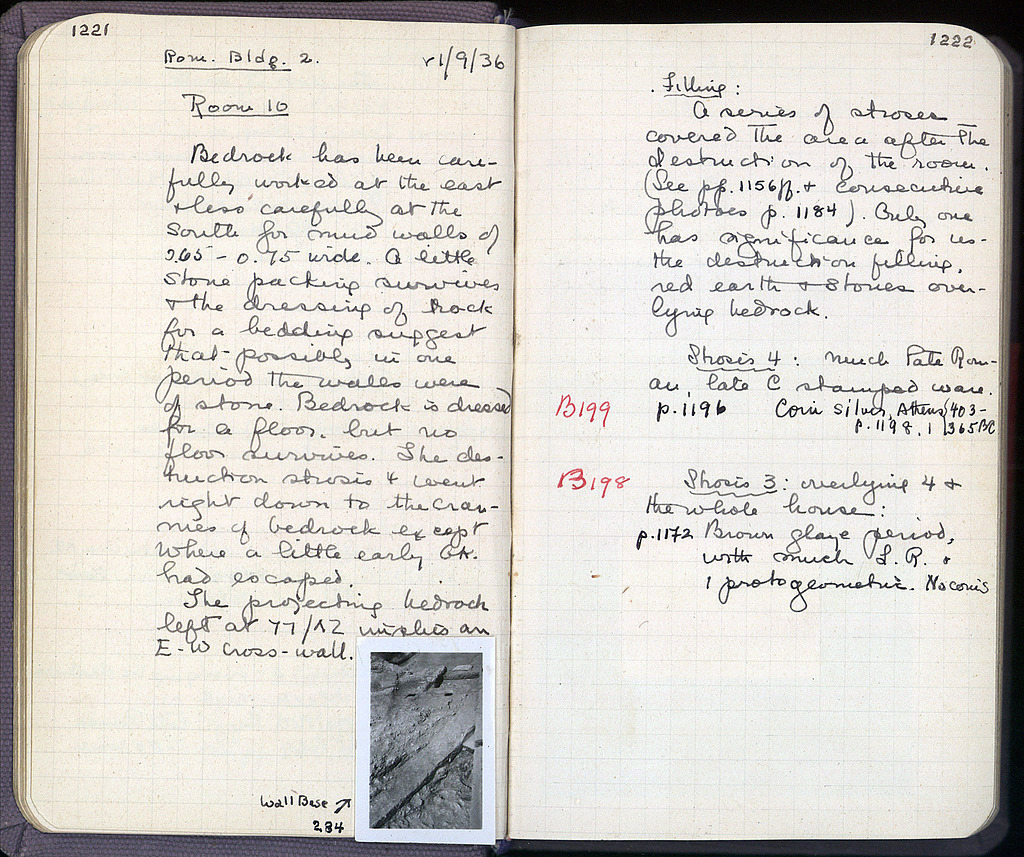 1221
Rom. Bldg. 2. v1/9/36
Room 10
Bedrock has been care-
fully worked at the east
& less carefully at the
south for mud walls of
0.65 - 0.75 wide. A little
stone packing survives
& the dressing of rock
for a bedding suggest
that possibly in one
period the walls were
of stone. Bedrock is dressed
for a floor, but no
floor survives. The des-
truction strosis 4 went
right down to the cran-
nies of bedrock except
where a little early Gk.
had escaped.
The projecting bedrock
left at 77/ΛΖ implies an
E-W cross-wall.
Wall Base ↗
284
1222
Filling:
A series of stroses
covered the area after the
destruction of the room.
(See pp. 1156ff. & consecutive
photoes p. 1184). Only one
has significance for us -
the destruction filling,
red earth & stones over-
lying bedrock.
Strosis 4: much late Rom-
an, late C stamped ware.
B199 p.1196 Coin silver, Athens 403-
p.1198.1 365 BC
B198 Strosis 3: overlying 4 &
the whole house:
p.1172 Brown glaze period,
with much L.R. &
1 protogeometric. No coins